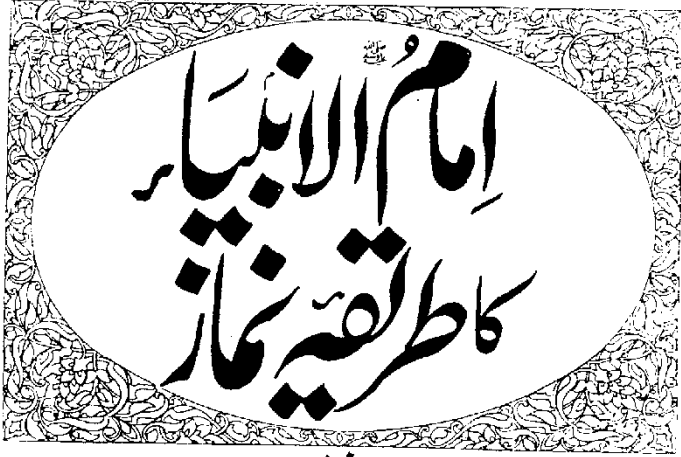 اِمامُ الانبیَاء ﷺ
کا طریقۂ نماز